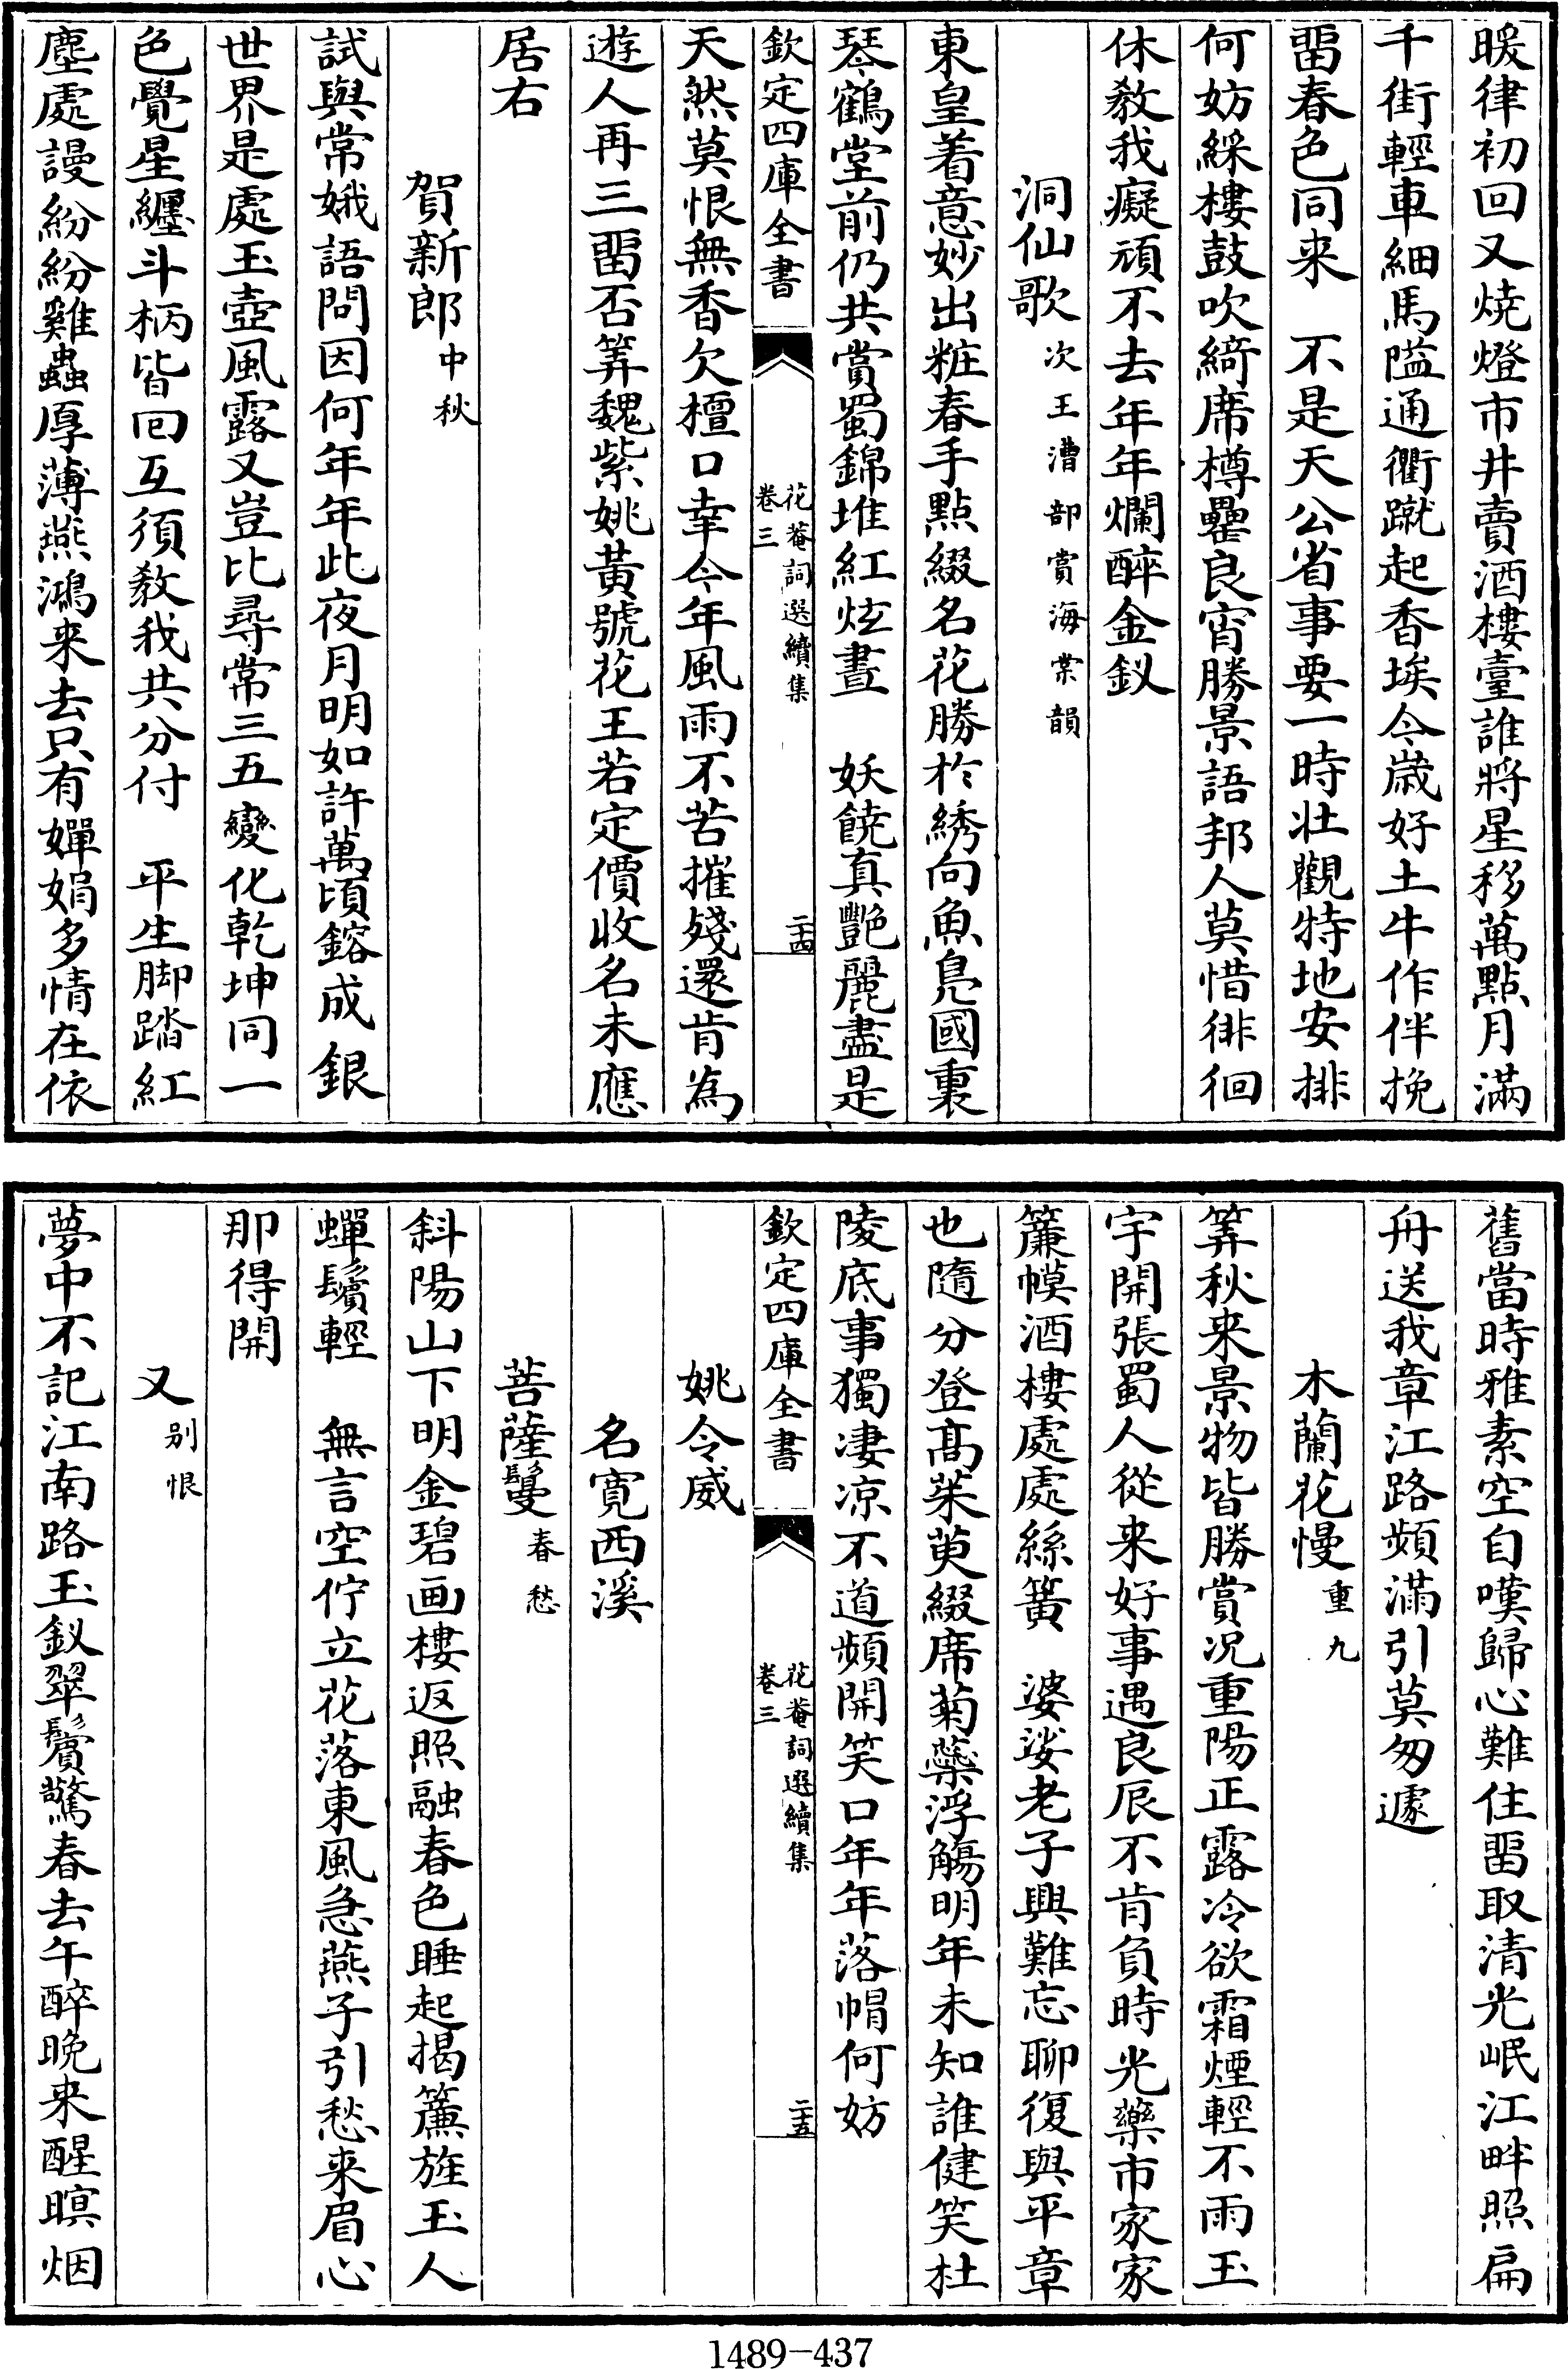 暖律初回又燒燈市井賣酒樓臺誰將星移萬點月滿
千街輕車細馬隘通衢蹴起香埃今歲好土牛作伴挽
畱春色同来　不是天公省事要一時壯觀特地安排
何妨綵樓鼓吹綺席樽罍良宵勝景語邦人莫惜徘徊
休教我癡頑不去年年爛醉金釵
洞仙歌次王漕部賞海棠韻
東皇着意妙出粧春手點綴名花勝於綉向魚鳧國裏
琴鶴堂前仍共賞蜀錦堆紅炫晝　妖饒真艷麗盡是
欽定四庫全書
花菴詞選續集
卷三
二十四
天然莫恨無香欠檀口幸今年風雨不苦摧殘還肯為
遊人再三畱否筭魏紫姚黃號花王若定價收名未應
居右
賀新郎中秋
試與常娥語問因何年年此夜月明如許萬頃鎔成銀
世界是處玉壺風露又豈比尋常三五變化乾坤同一
色覺星纏斗柄皆囘互須教我共分付　平生脚踏紅
塵處謾紛紛雞蟲厚薄燕鴻来去只有嬋娟多情在依
舊當時雅素空自嘆歸心難住畱取清光岷江畔照扁
舟送我章江路頻滿引莫匆遽
木蘭花慢重九
筭秋来景物皆勝賞况重陽正露冷欲霜煙輕不雨玉
宇開張蜀人從来好事遇良辰不肯負時光藥市家家
簾幙酒樓處處絲簧　婆娑老子興難忘聊復與平章
也隨分登髙茱萸綴席菊蘂浮觴明年未知誰健笑杜
陵底事獨凄凉不道頻開笑口年年落帽何妨
欽定四庫全書
花菴詞選續集
卷三
二十五
姚令威
名寬西溪
菩薩鬘春愁
斜陽山下明金碧画樓返照融春色睡起揭簾旌玉人
蟬鬢輕　無言空佇立花落東風急燕子引愁来眉心
那得開
又别恨
夢中不記江南路玉釵翠鬢驚春去午醉晚来醒暝烟
1489-437